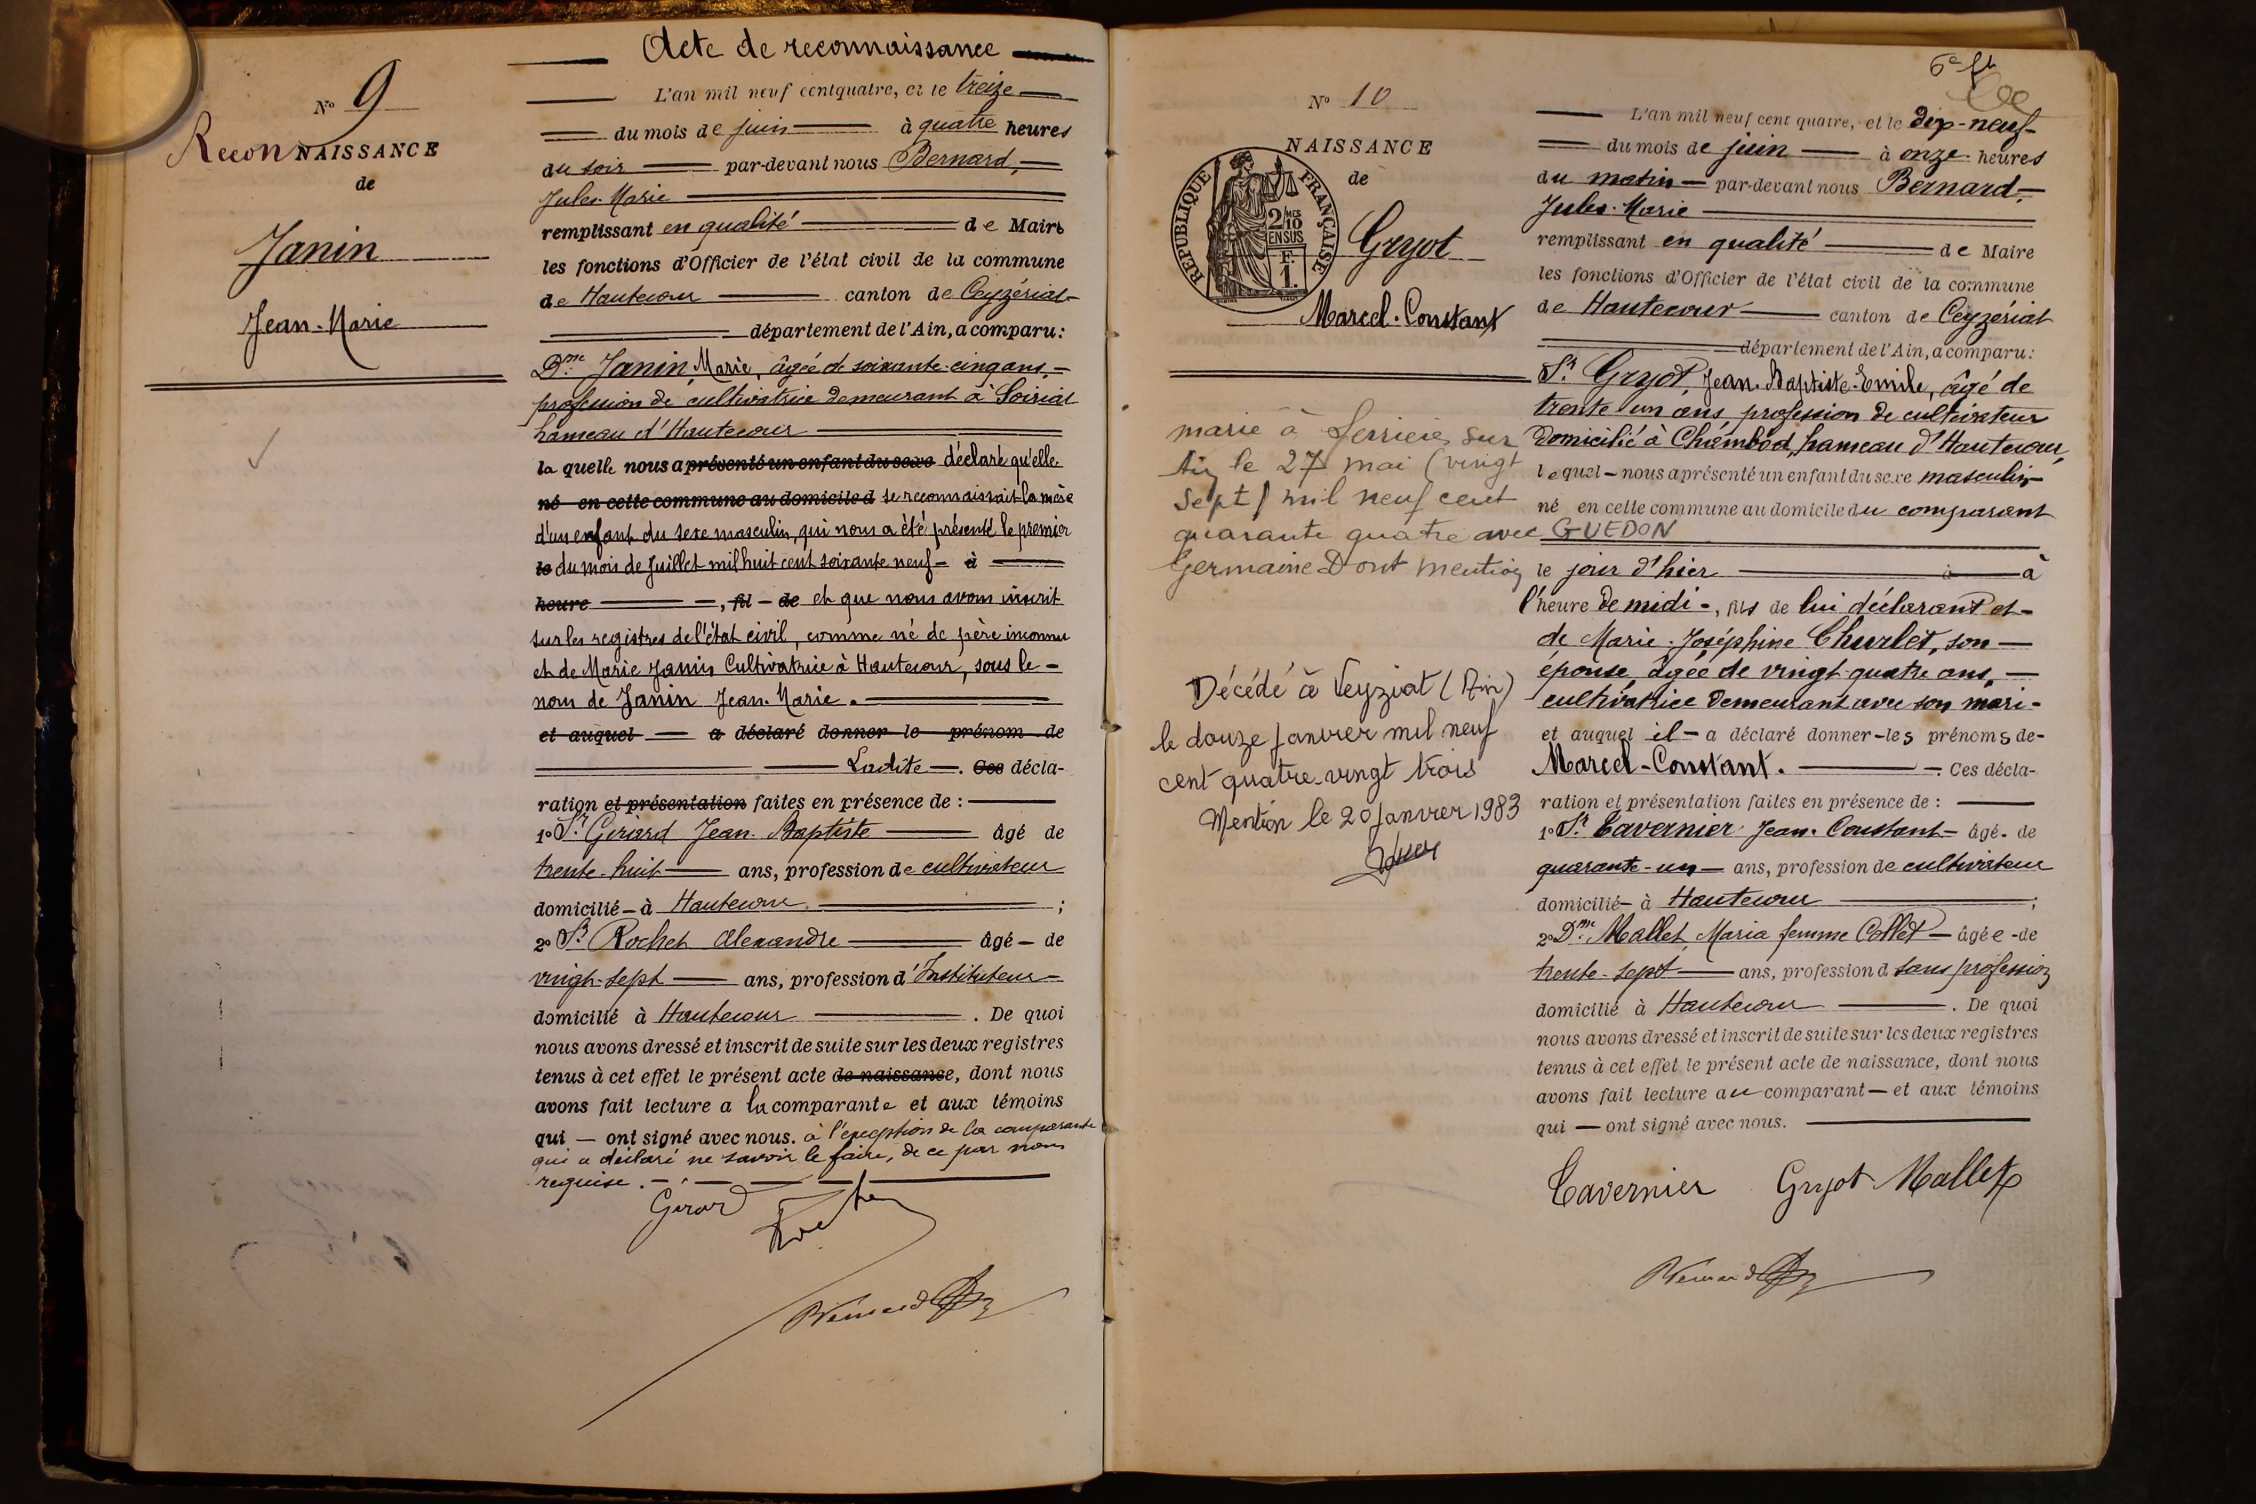 Acte de reconnaissance
N° 9
ReconNAISSANCE
de
Janin
Jean-Marie
L'an mil neuf cent quatre, et le treize
du mois de juin à quatre heures
du soir par-devant nous Bernard,
Jules-Marie
remplissant en qualité de Maire
les fonctions d'Officier de l'état civil de la commune
de Hautecour canton de Ceyzériat
département de l'Ain, a comparu:
Dme Janin, Marie, âgée de soixante-cinq ans,
profession de cultivatrice demeurant à Soiriat
hameau d'Hautecour
la quelle nous a présenté un enfant du sexe déclaré qu'elle
né en cette commune au domicile d se reconnaissait la mère
d'un enfant du sexe masculin, qui nous a été présenté le premier
le du mois de Juillet mil huit cent soixante neuf - à
heure , fil - de et que nous avons inscrit
sur les registres de l'état civil, comme né de père inconnu
et de Marie Janin Cultivatrice à Hautecour, sous le -
nom de Janin Jean-Marie.
et auquel a déclaré donner le prénom de
Ladite . Ces décla-
ration et présentation faites en présence de :
1° Sr Girard Jean-Baptiste âgé de
trente-huit ans, profession de cultivateur
domicilié - à Hautecour ;
2° Sr Rochet Alexandre âgé - de
vingt-sept ans, profession d'Instituteur
domicilié à Hautecour . De quoi
nous avons dressé et inscrit de suite sur les deux registres
tenus à cet effet le présent acte de naissance, dont nous
avons fait lecture a la comparante et aux témoins
qui - ont signé avec nous. à l'exception de la comparante
qui a déclaré ne savoir le faire, de ce par nous
requise.
Girard Rochet
Bernard
6e ft
N° 10
NAISSANCE
de
RÉPUBLIQUE FRANÇAISE
2/10 MES
EN SUS
F.
1.
Gryot
Marcel-Constant
marié à Serrières sur
Ain le 27 mai (vingt
sept) mil neuf cent
quarante quatre avec GUEDON
Germaine Dont mention
Décédé à Veyziat (Ain)
le douze Janvier mil neuf
cent quatre-vingt trois
Mention le 20 Janvier 1983
L'an mil neuf cent quatre, et le dix-neuf
du mois de juin à onze heures
du matin par-devant nous Bernard,
Jules-Marie
remplissant en qualité de Maire
les fonctions d'Officier de l'état civil de la commune
de Hautecour canton de Ceyzériat
département de l'Ain, a comparu:
Sr Gryot, Jean-Baptiste-Emile, âgé de
trente un ans, profession de cultivateur
domicilié à Chambod, hameau d'Hautecour,
lequel - nous a présenté un enfant du sexe masculin
né en cette commune au domicile du comparant
le jour d'hier à à
l'heure de midi -, fils de lui déclarant et -
de Marie-Joséphine Churlet, son
épouse, âgée de vingt-quatre ans,
cultivatrice demeurant avec son mari -
et auquel il - a déclaré donner - les prénoms de -
Marcel-Constant. . Ces décla-
ration et présentation faites en présence de :
1° Sr Tavernier Jean-Constant - âgé - de
quarante-un ans, profession de cultivateur
domicilié - à Hautecour ;
2° Dme Mallet, Maria femme Collet - âgée - de
trente-sept ans, profession d sans profession
domicilié à Hautecour . De quoi
nous avons dressé et inscrit de suite sur les deux registres
tenus à cet effet le présent acte de naissance, dont nous
avons fait lecture au comparant - et aux témoins
qui - ont signé avec nous.
Tavernier Gryot Mallet
Bernard